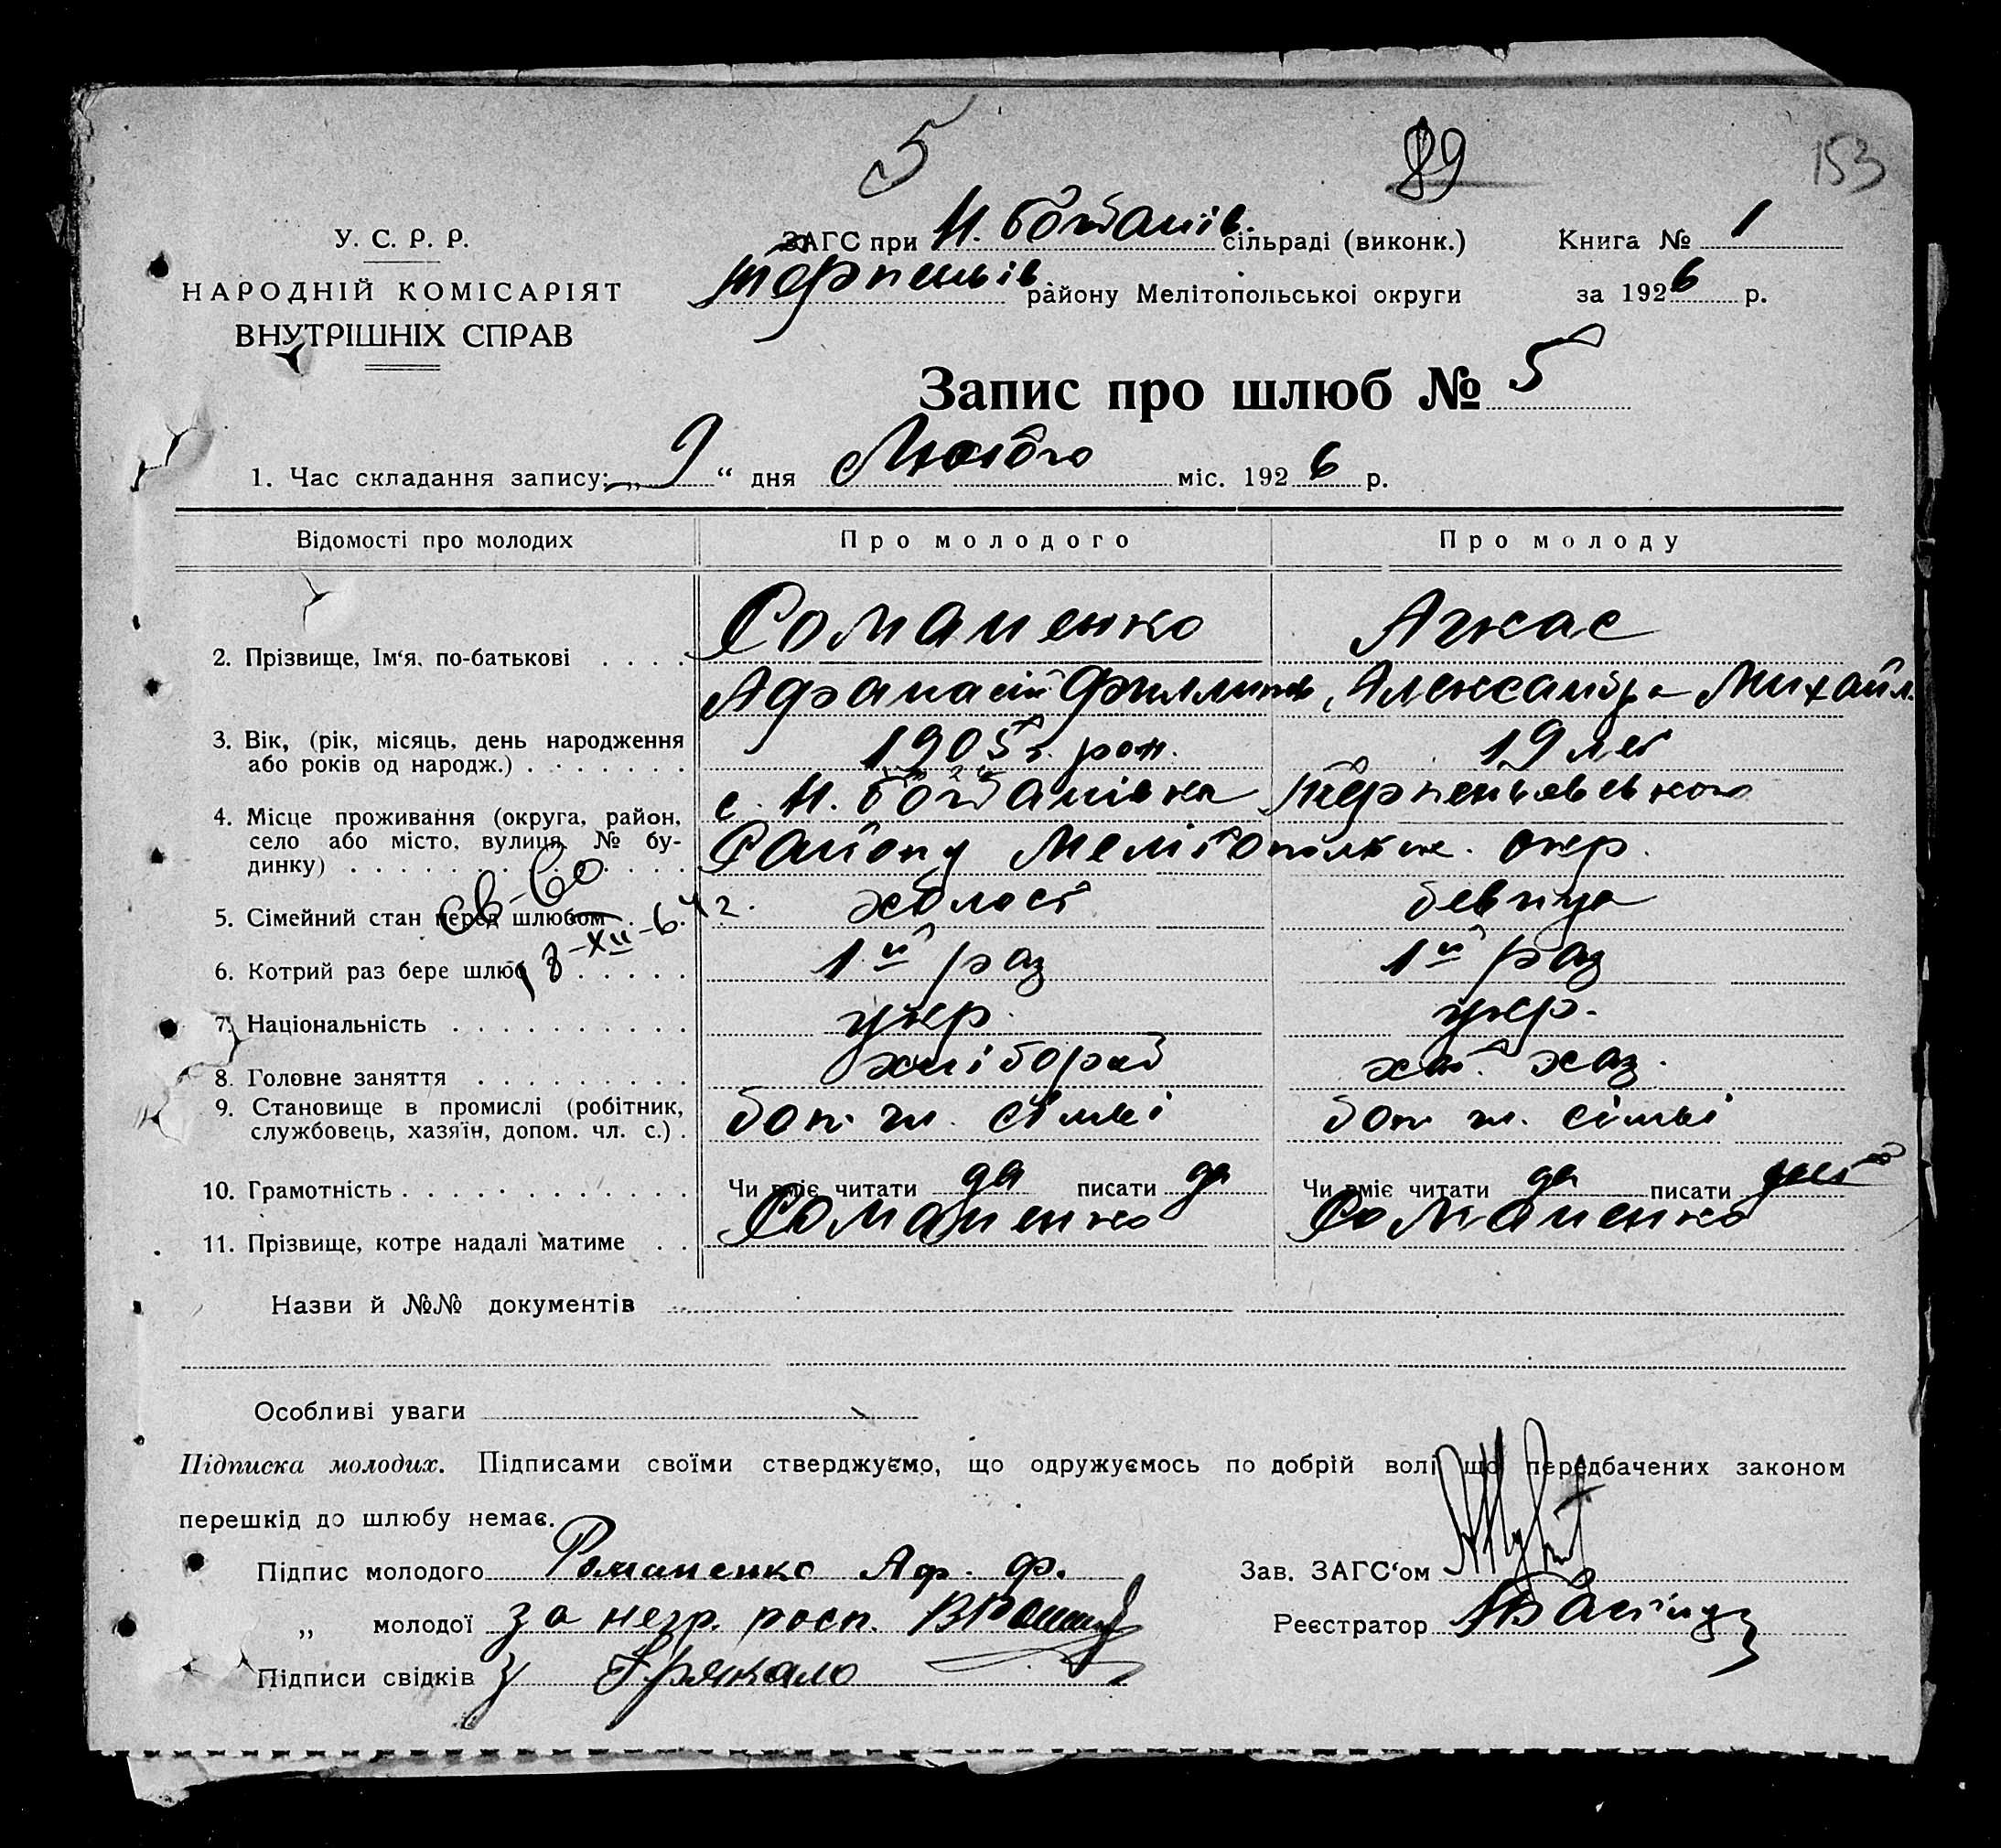 5 89 153
У. С. Р. Р.
НАРОДНІЙ КОМІСАРІЯТ
ВНУТРІШНІХ СПРАВ
ЗАГС при Н. Богданів. сільраді (виконк.) Книга № 1
Терпеньів. району Мелітопольської округи за 1926 р.
Запис про шлюб № 5
1. Час складання запису: „ 9 “ дня Лютого міс. 1926 р.
Відомості про молодих Про молодого Про молоду
2. Прізвище, Ім‘я, по-батькові . . . . Романенко Аркас
Афанасій Филлипов, Александра Михайл.
3. Вік, (рік, місяць, день народження 1905 г. рож. 19 лет
або років од народж.) . . . . . . .
4. Місце проживання (округа, район, с. Н. Богданівка Терпеньевського
село або місто, вулиця, № бу-
динку) . . . . . . . . . . . . . Району Мелітопольськ. окр.
5. Сімейний стан перед шлюбом . . холост девица
Св-во
13-XII-64 г.
6. Котрий раз бере шлюб . . . . . 1й раз 1й раз
7. Національність . . . . . . . . . . укр. укр.
8. Головне заняття . . . . . . . . . хлібороб хат. хаз.
9. Становище в промислі (робітник, доп. чл. сімьі доп. чл. сімьі
службовець, хазяїн, допом. чл. с.) .
10. Грамотність . . . . . . . . . . . . Чи вміє читати да писати да Чи вміє читати да писати
11. Прізвище, котре надалі матиме . . Романенко Романенко
Назви й №№ документів
Особливі уваги
Підписка молодих. Підписами своїми стверджуємо, що одружуємось по добрій волі що передбачених законом
перешкід до шлюбу немає.
Підпис молодого Романенко Аф. Ф. Зав. ЗАГС‘ом
„ молодої за негр. росп. Реєстратор
Підписи свідків